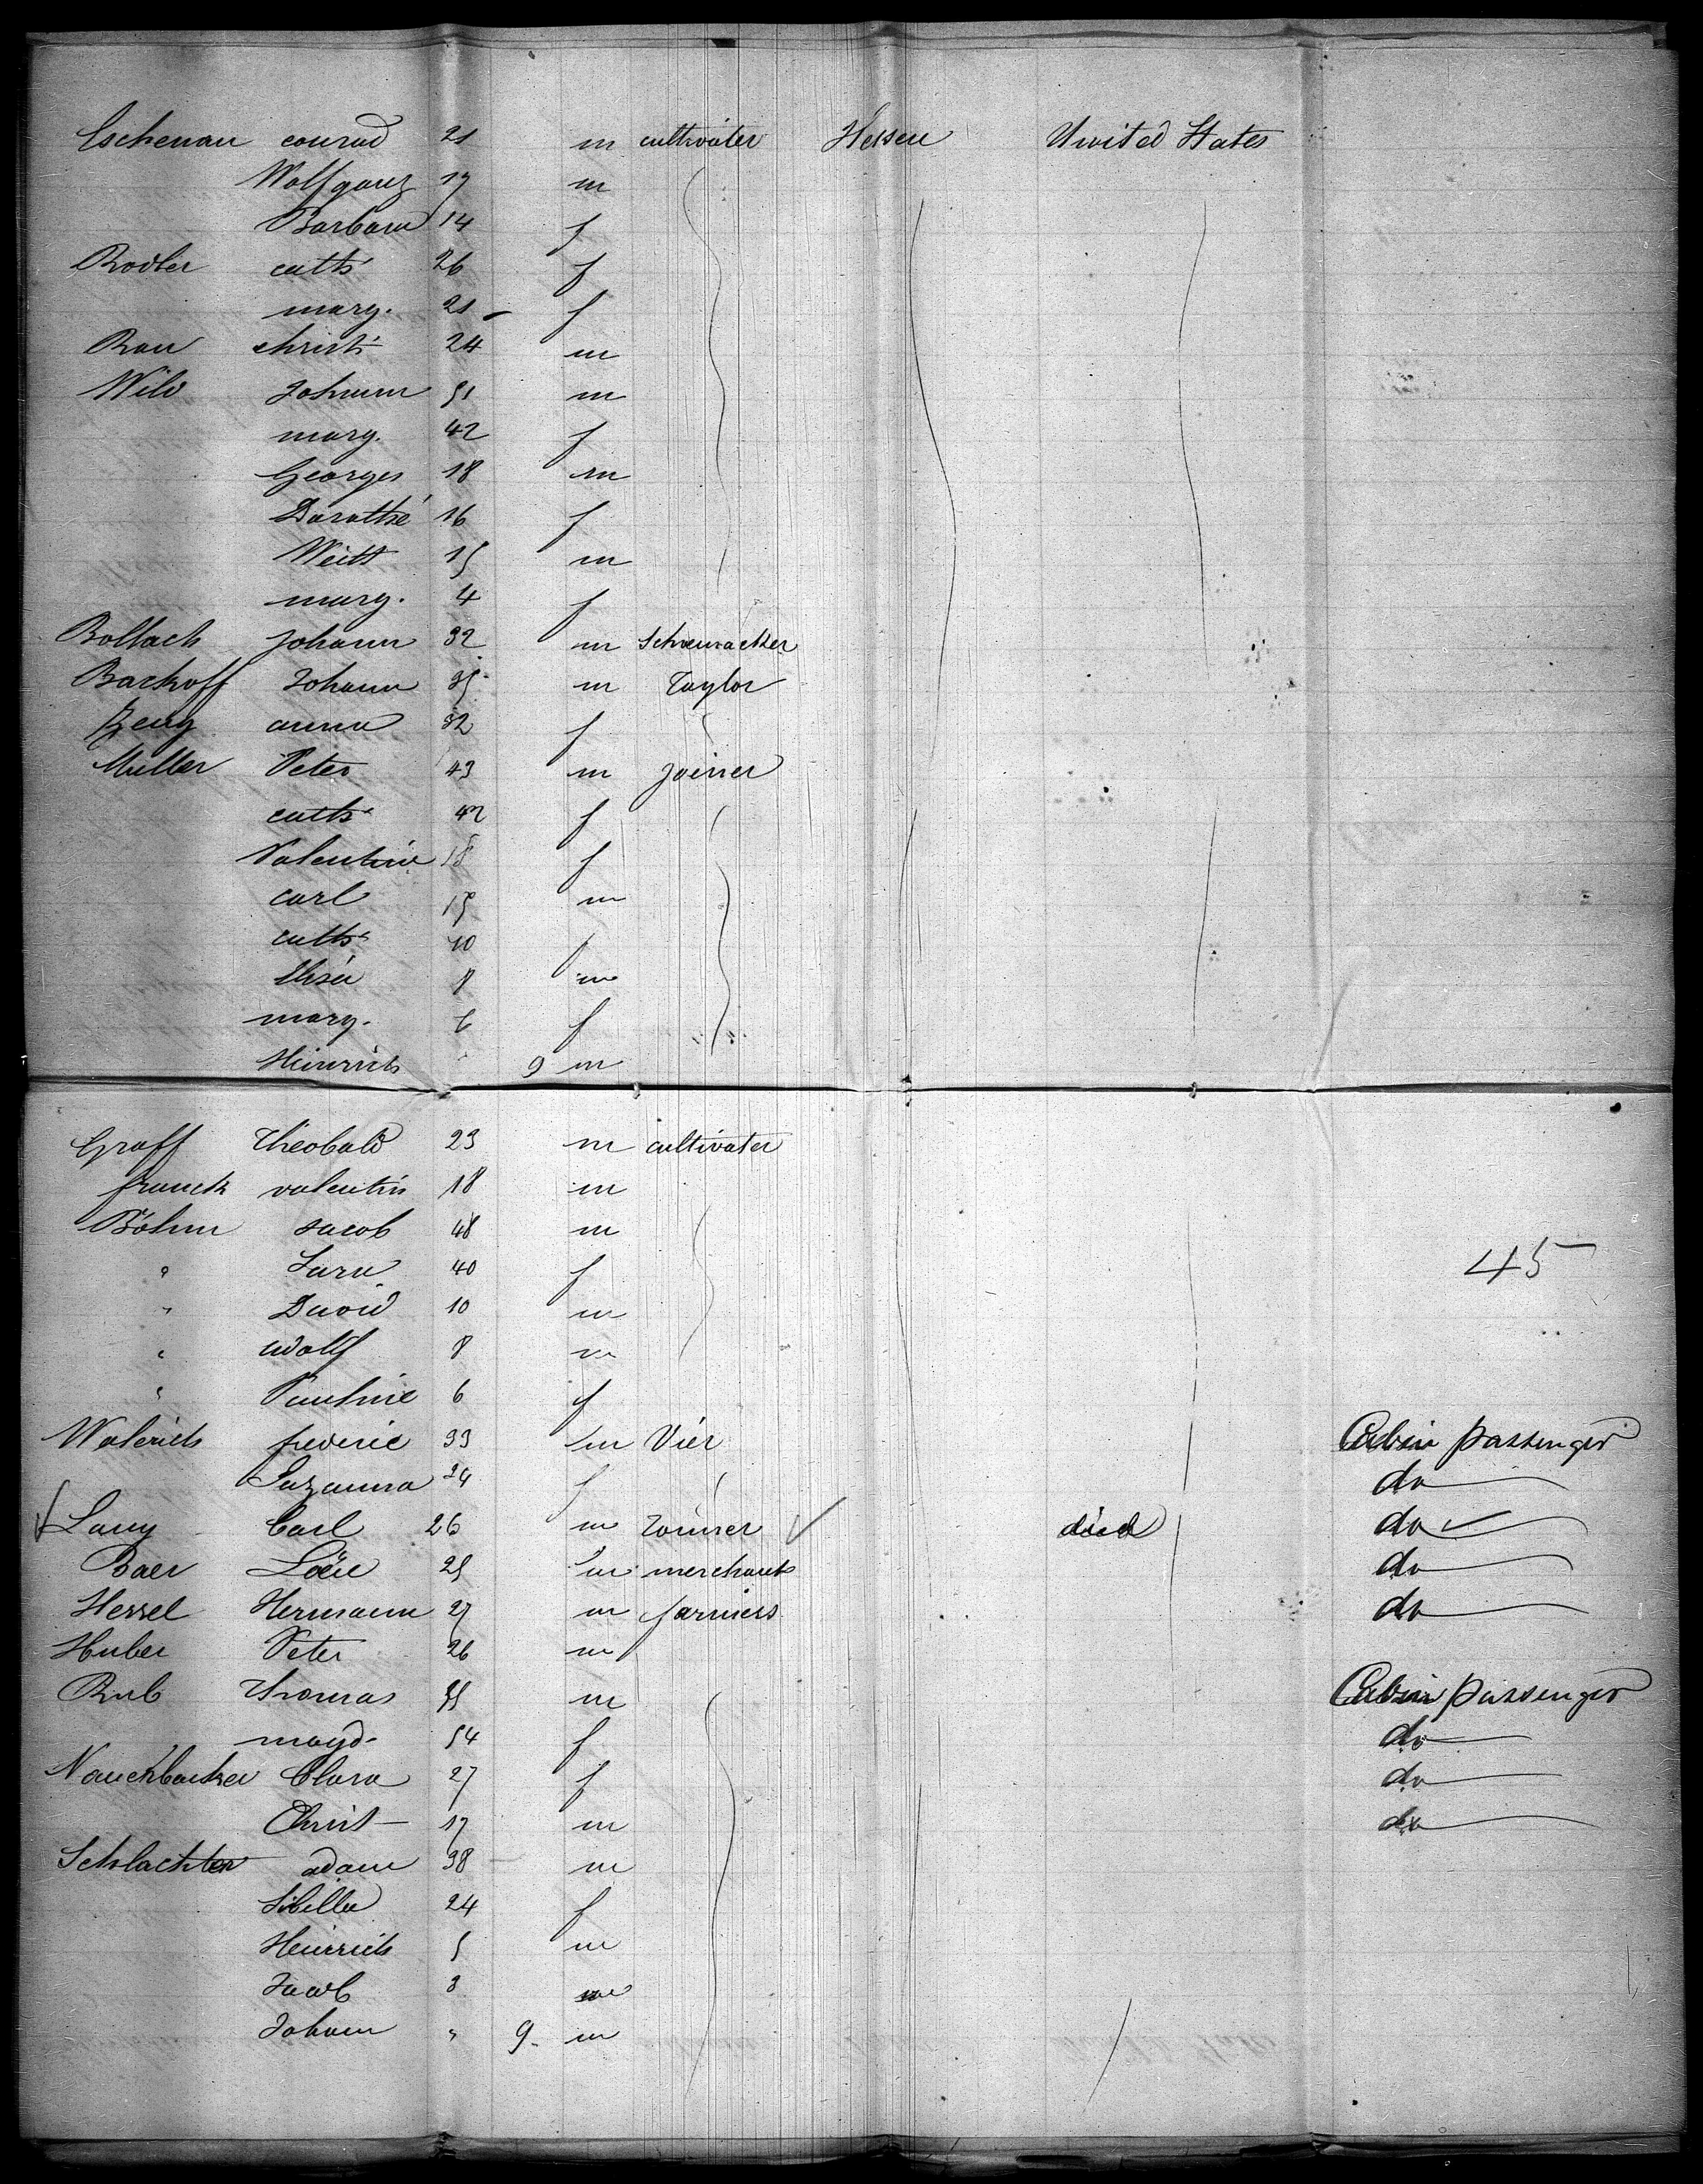 Eschenau conrad 21 m cultivater Hessen United States
Wolfgang 17 m
Barbara 14 f
Rodler cath 26 f
marg. 21 f
Rau christ 24 m
Wild Johann 51 m
marg. 42 f
Georges 18 m
Dorothé 16 f
Weitt 15 m
marg. 4 f
Bollach Johann 32 m Schoemacker
Backoff Johann 35 m Taylor
Zeug anna 32 f
Muller Peter 43 m Joiner
cath 42 f
Valentine 18 f
carl 15 m
cath 10 f
8 m
marg. 6 f
Heinrich 9 m
Graff Théobald 23 m cultivater
franck valentin 18 m
Böhm Jacob 48 m
" Sara 40 f 45
" David 10 m
" adolf 8 m
" Pauline 6 f
Walerich frederic 33 m Vier Cabin passenger
Suzanna 24 f do
Lang Carl 26 m Joiner died do
Baer Loëie 25 m merchant do
Hessel Hermann 27 m farmers do
Huber Peter 26 m
Rub Thomas 55 m Cabin passenger
magd. 54 f do
Nauenbacker Clara 27 f do
Christ 17 m do
Schlachter adam 38 m
Sibilla 24 f
Heinrich 5 m
Jacob 3 m
Johann " 9 m